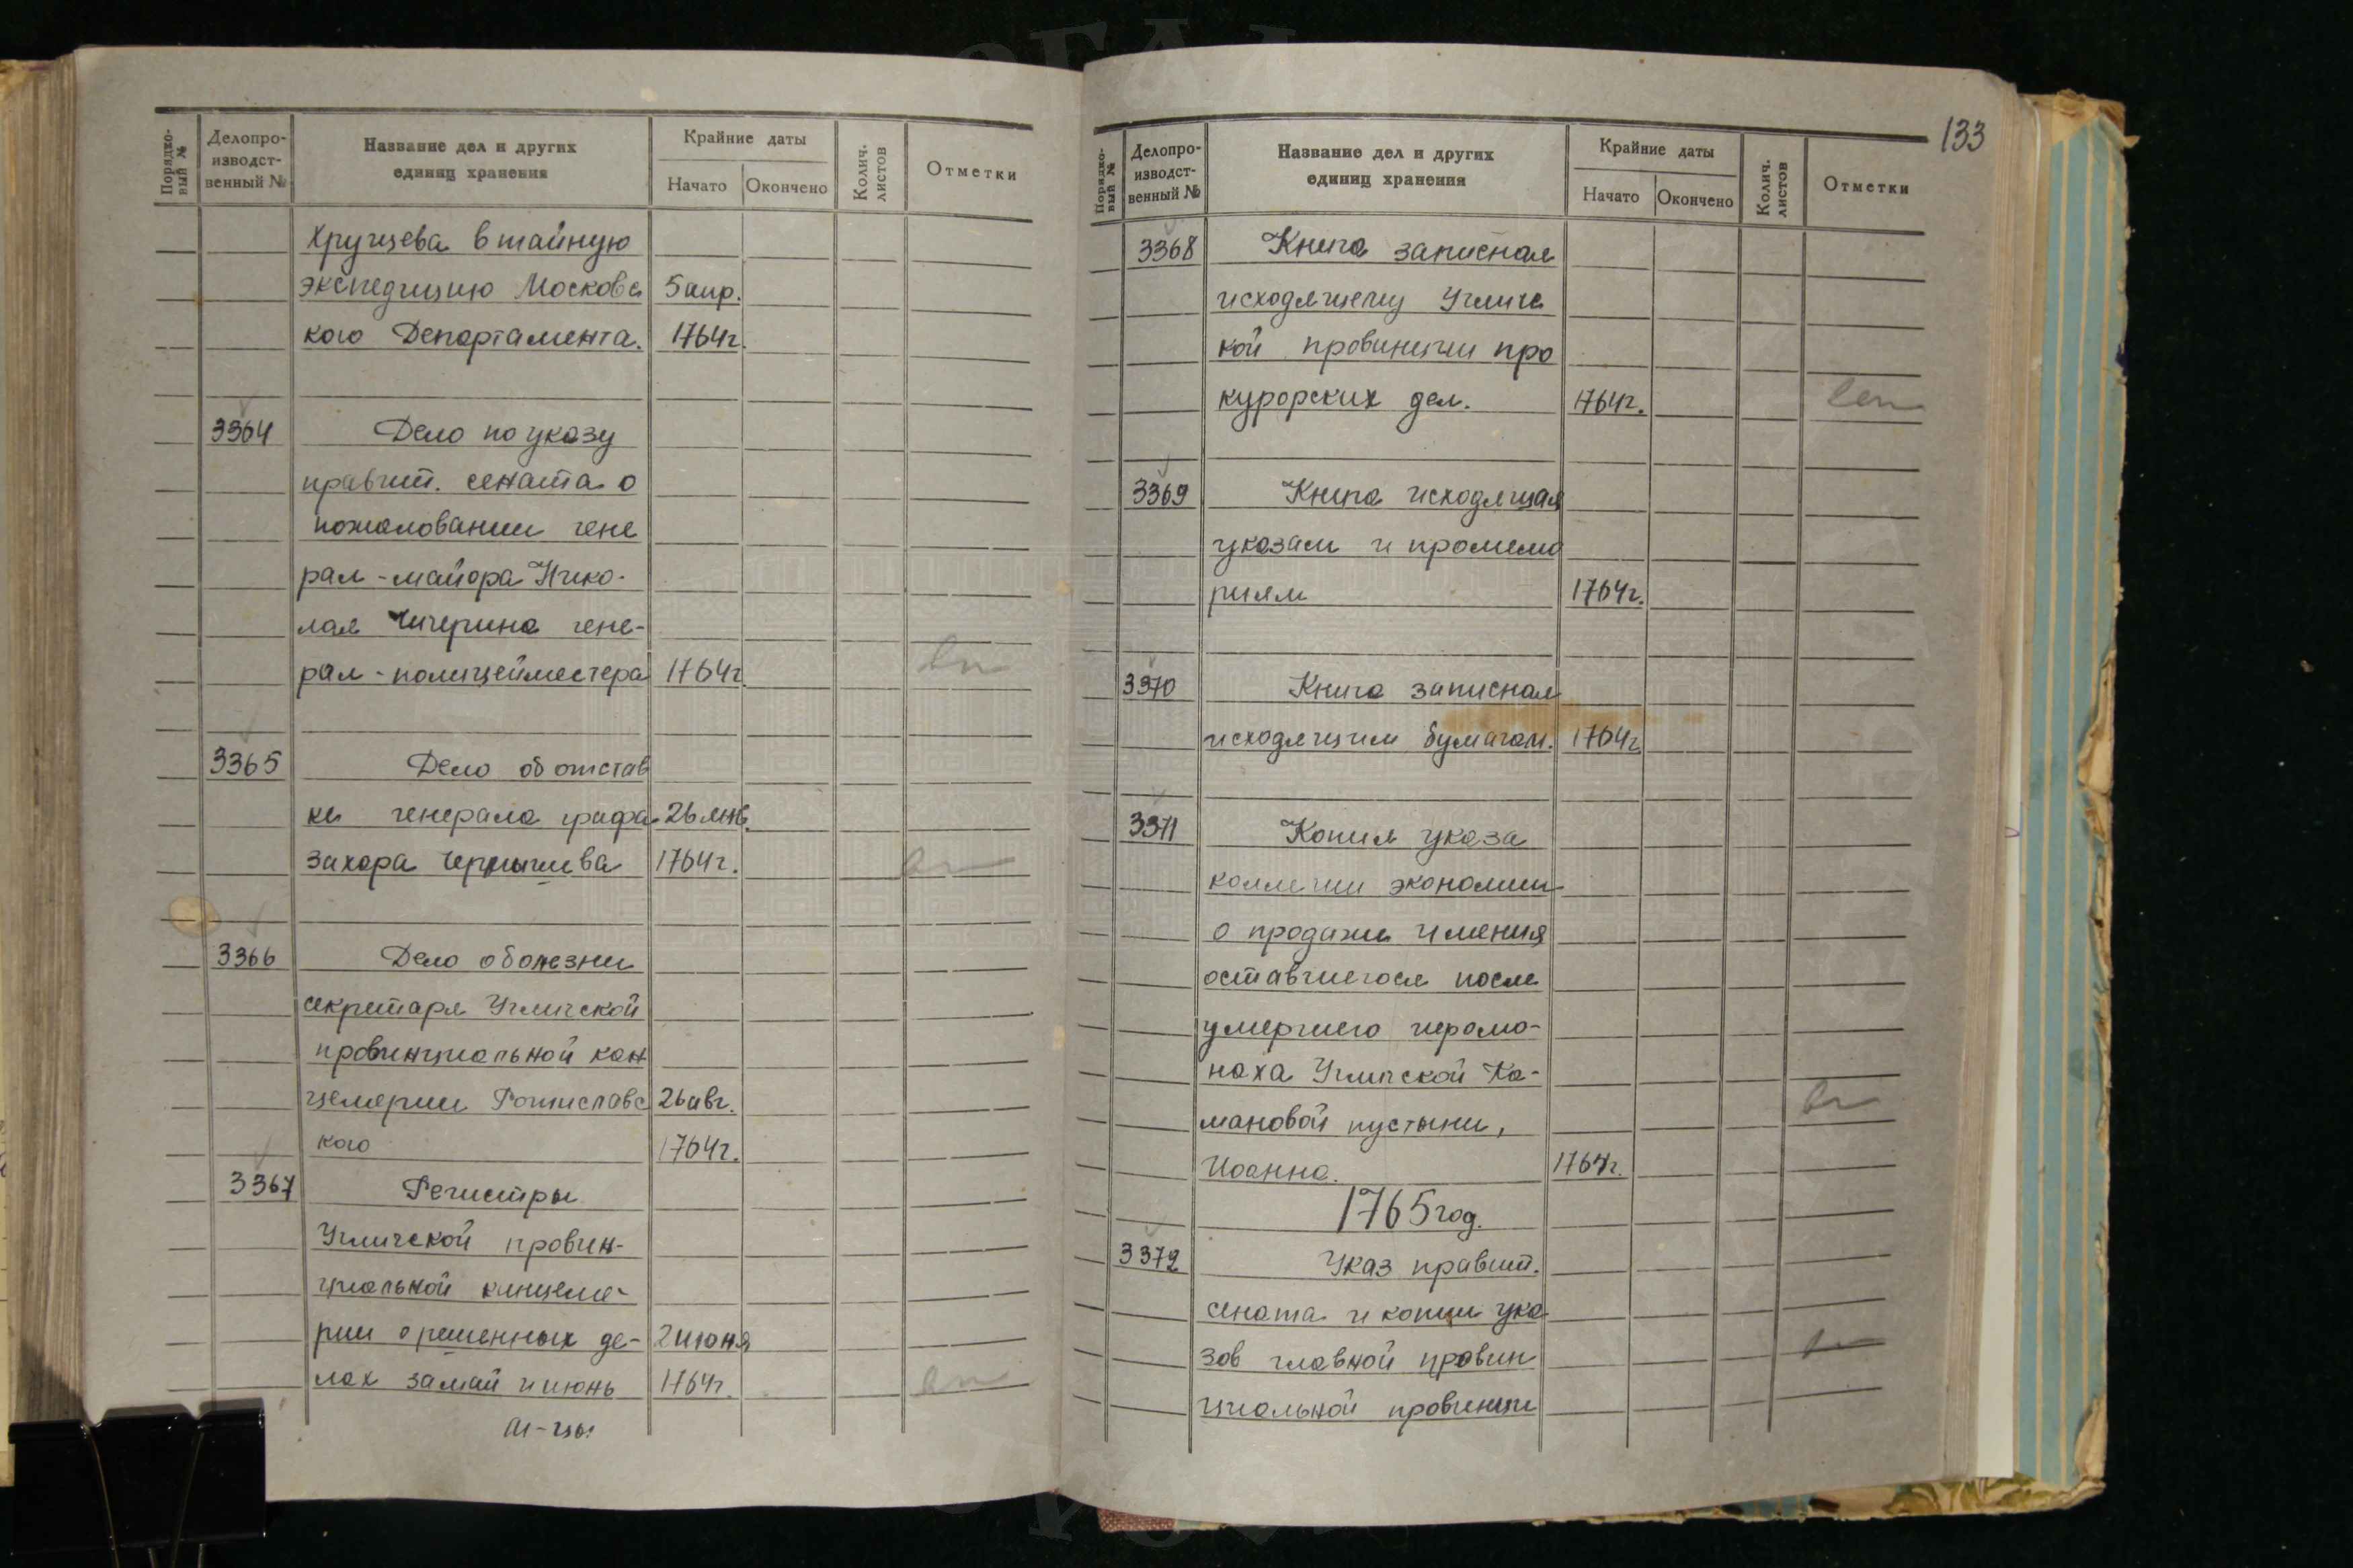 Порядко-
вый №
Делопро-
изводст-
венный №
Название дел и других
единиц хранения
Крайние даты
Начато
Окончено
Колич.
листов
Отметки
Хрущева в тайную
экспедицию Московс 5 апр.
кого Департамента. 1764г.
3364 Дело по указу
правит. сената о
пожаловании гене
рал-майора Нико-
лая Чичерина гене-
рал-полицейместера 1764г.
3365 Дело об отстав
ке генерала графа 26 янв.
Захара Чернышева 1764г.
3366 Дело о болезни
секретаря Угличской
провинциальной кан
целерии Ропписловс 26 авг.
кого 1764г.
3367 Регистры
Угличской провин-
циальной канцеле-
рии о решенных де- 2 июня
лах за май и июнь 1764г.
м-цы
133
Порядко-
вый №
Делопро-
изводст-
венный №
Название дел и других
единиц хранения
Крайние даты
Начато
Окончено
Колич.
листов
Отметки
3368 Книга записная
исходящему Угличс
кой провинции про
курорских дел. 1764г.
3369 Книга исходящая
указам и промемо
риям 1764г.
3370 Книга записная
исходящим бумагам. 1764г.
3371 Копия указа
коллегии экономии
о продаже имения
оставшегося после
умершего иеромо-
наха Угличской Ка-
мановой пустыни,
Иоанна. 1764г.
1765 год.
3372 Указ правит.
сената и копии ука
зов главной провин
циальной провинции